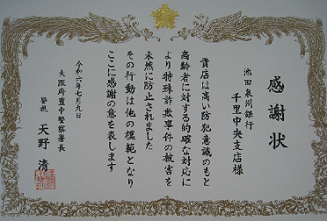 感謝状
池田泉州銀行
千里中央支店様
貴店は高い防犯意識のもと
高齢者に対する的確な対応に
より特殊詐欺事件の被害を
未然に防止されました
その行動は他の模範となり
ここに感謝の意を表します
令和六年七月九日
大阪府豊中警察署長
警視 天野 清